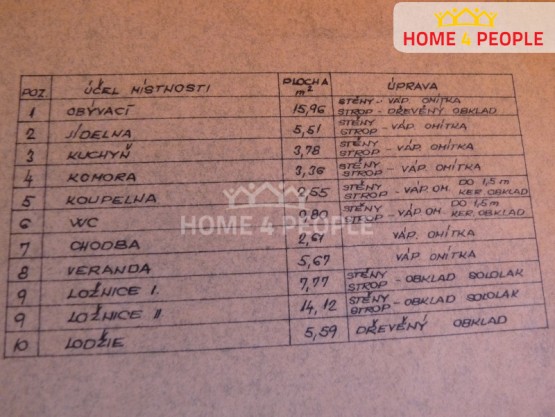 HOME 4 PEOPLE
POZ. ÚČEL MÍSTNOSTI PLOCHA m² ÚPRAVA
1 OBÝVACÍ 15,96 STĚNY - VÁP. OMÍTKA
STROP - DŘEVĚNÝ OBKLAD
2 JÍDELNA 5,51 STĚNY
STROP - VÁP. OMÍTKA
3 KUCHYŇ 3,78 STĚNY
STROP - VÁP. OMÍTKA
4 KOMORA 3,36 STĚNY
STROP - VÁP. OMÍTKA
5 KOUPELNA 2,55 STĚNY
STROP - VÁP. OM. DO 1,5 m
KER. OBKLAD
6 WC 0,80 STĚNY
STROP - VÁP. OM. DO 1,5 m
KER. OBKLAD
7 CHODBA 2,61 VÁP. OMÍTKA
8 VERANDA 5,67 VÁP. OMÍTKA
9 LOŽNICE I. 7,77 STĚNY
STROP - OBKLAD SOLOLAK
9 LOŽNICE II 14,12 STĚNY
STROP - OBKLAD SOLOLAK
10 LODŽIE 5,59 DŘEVĚNÝ OBKLAD
HOME 4 PEOPLE